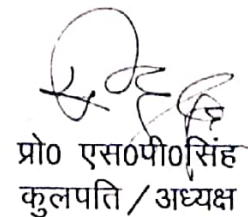 प्रो0 एस0पी0सिंह
कुलपति / अध्यक्ष